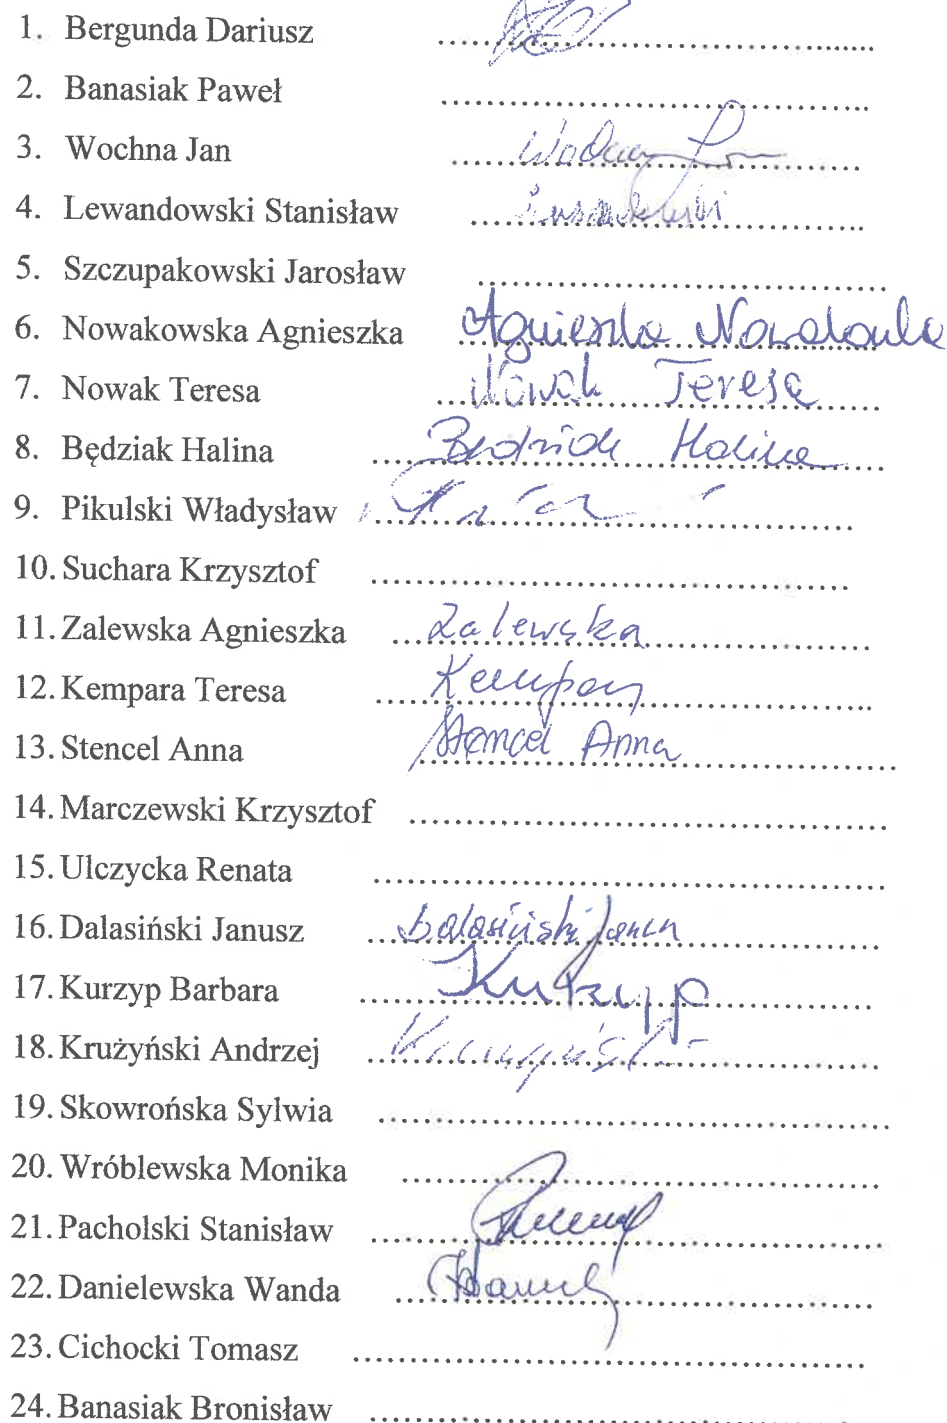 1. Bergunda Dariusz ..........
2. Banasiak Paweł ..........
3. Wochna Jan ..........
4. Lewandowski Stanisław .......... Lewandowski
5. Szczupakowski Jarosław ..........
6. Nowakowska Agnieszka .......... Agnieszka Nowakowska
7. Nowak Teresa .......... Nowak Teresa
8. Będziak Halina .......... Będziak Halina
9. Pikulski Władysław ..........
10. Suchara Krzysztof ..........
11. Zalewska Agnieszka .......... Zalewska
12. Kempara Teresa ..........
13. Stencel Anna .......... Stencel Anna
14. Marczewski Krzysztof ..........
15. Ulczycka Renata ..........
16. Dalasiński Janusz .......... Dalasiński Janusz
17. Kurzyp Barbara .......... Kurzyp
18. Krużyński Andrzej ..........
19. Skowrońska Sylwia ..........
20. Wróblewska Monika ..........
21. Pacholski Stanisław ..........
22. Danielewska Wanda ..........
23. Cichocki Tomasz ..........
24. Banasiak Bronisław ..........